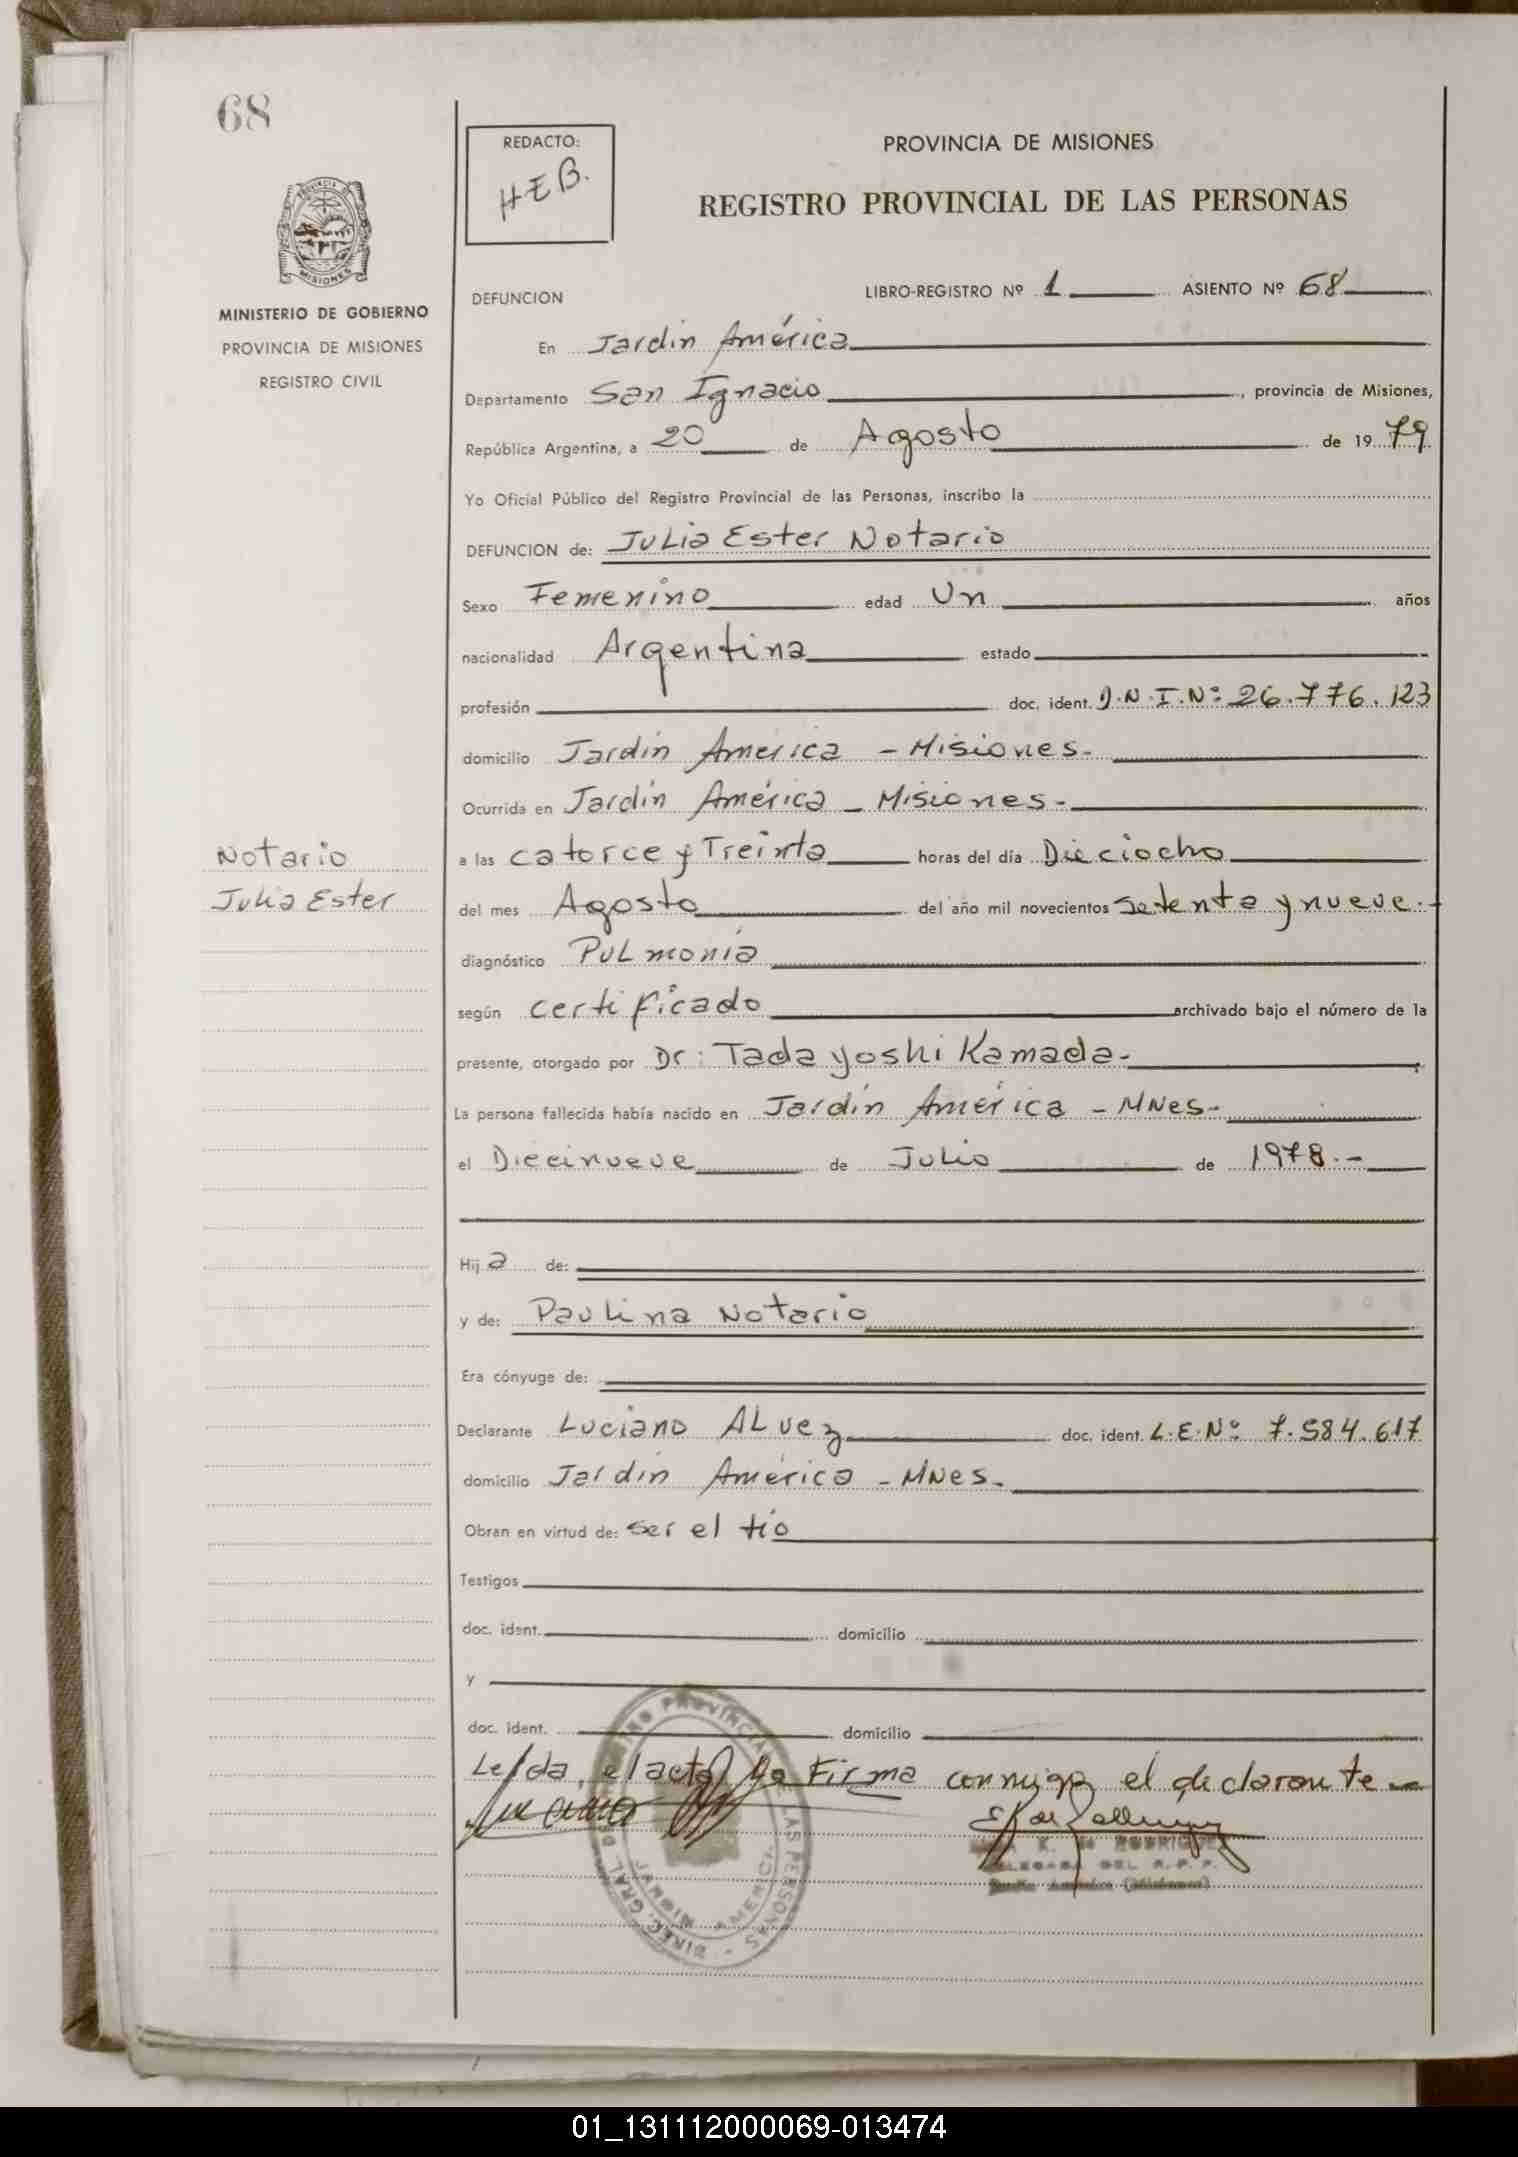 68
REDACTO:
HEB.
PROVINCIA DE MISIONES
REGISTRO PROVINCIAL DE LAS PERSONAS
PROVINCIA DE
MISIONES
MINISTERIO DE GOBIERNO
PROVINCIA DE MISIONES
REGISTRO CIVIL
DEFUNCION LIBRO-REGISTRO Nº 1 ASIENTO Nº 68
En Jardín América
Departamento San Ignacio, provincia de Misiones,
República Argentina, a 20 de Agosto de 1979.
Yo Oficial Público del Registro Provincial de las Personas, inscribo la
DEFUNCION de: Julia Ester Notario
Sexo Femenino edad Un años
nacionalidad Argentina estado
profesión doc. ident. D.N.I.Nº 26.776.123
domicilio Jardín América - Misiones-
Ocurrida en Jardín América - Misiones-
Notario
Julia Ester
a las catorce y Treinta horas del día Dieciocho
del mes Agosto del año mil novecientos setenta y nueve.-
diagnóstico Pulmonía
según certificado archivado bajo el número de la
presente, otorgado por Dr: Tadayoshi Kamada-
La persona fallecida había nacido en Jardín América - MNes-
el Diecinueve de Julio de 1978.-
Hija de:
y de: Paulina Notario
Era cónyuge de:
Declarante Luciano Alvez doc. ident. L.E.Nº 7.584.617
domicilio Jardín América - MNes-
Obran en virtud de: ser el tío
Testigos
doc. ident. domicilio
y
doc. ident. domicilio
Leída, el acta la Firma conmigo el declarante
DIREC. GRAL. DEL REGISTRO PROVINCIAL DE LAS PERSONAS
JARDIN AMERICA
K. de RODRIGUEZ
DELEGADA DEL R.P.P.
Jardín América (Misiones)
01_131112000069-013474